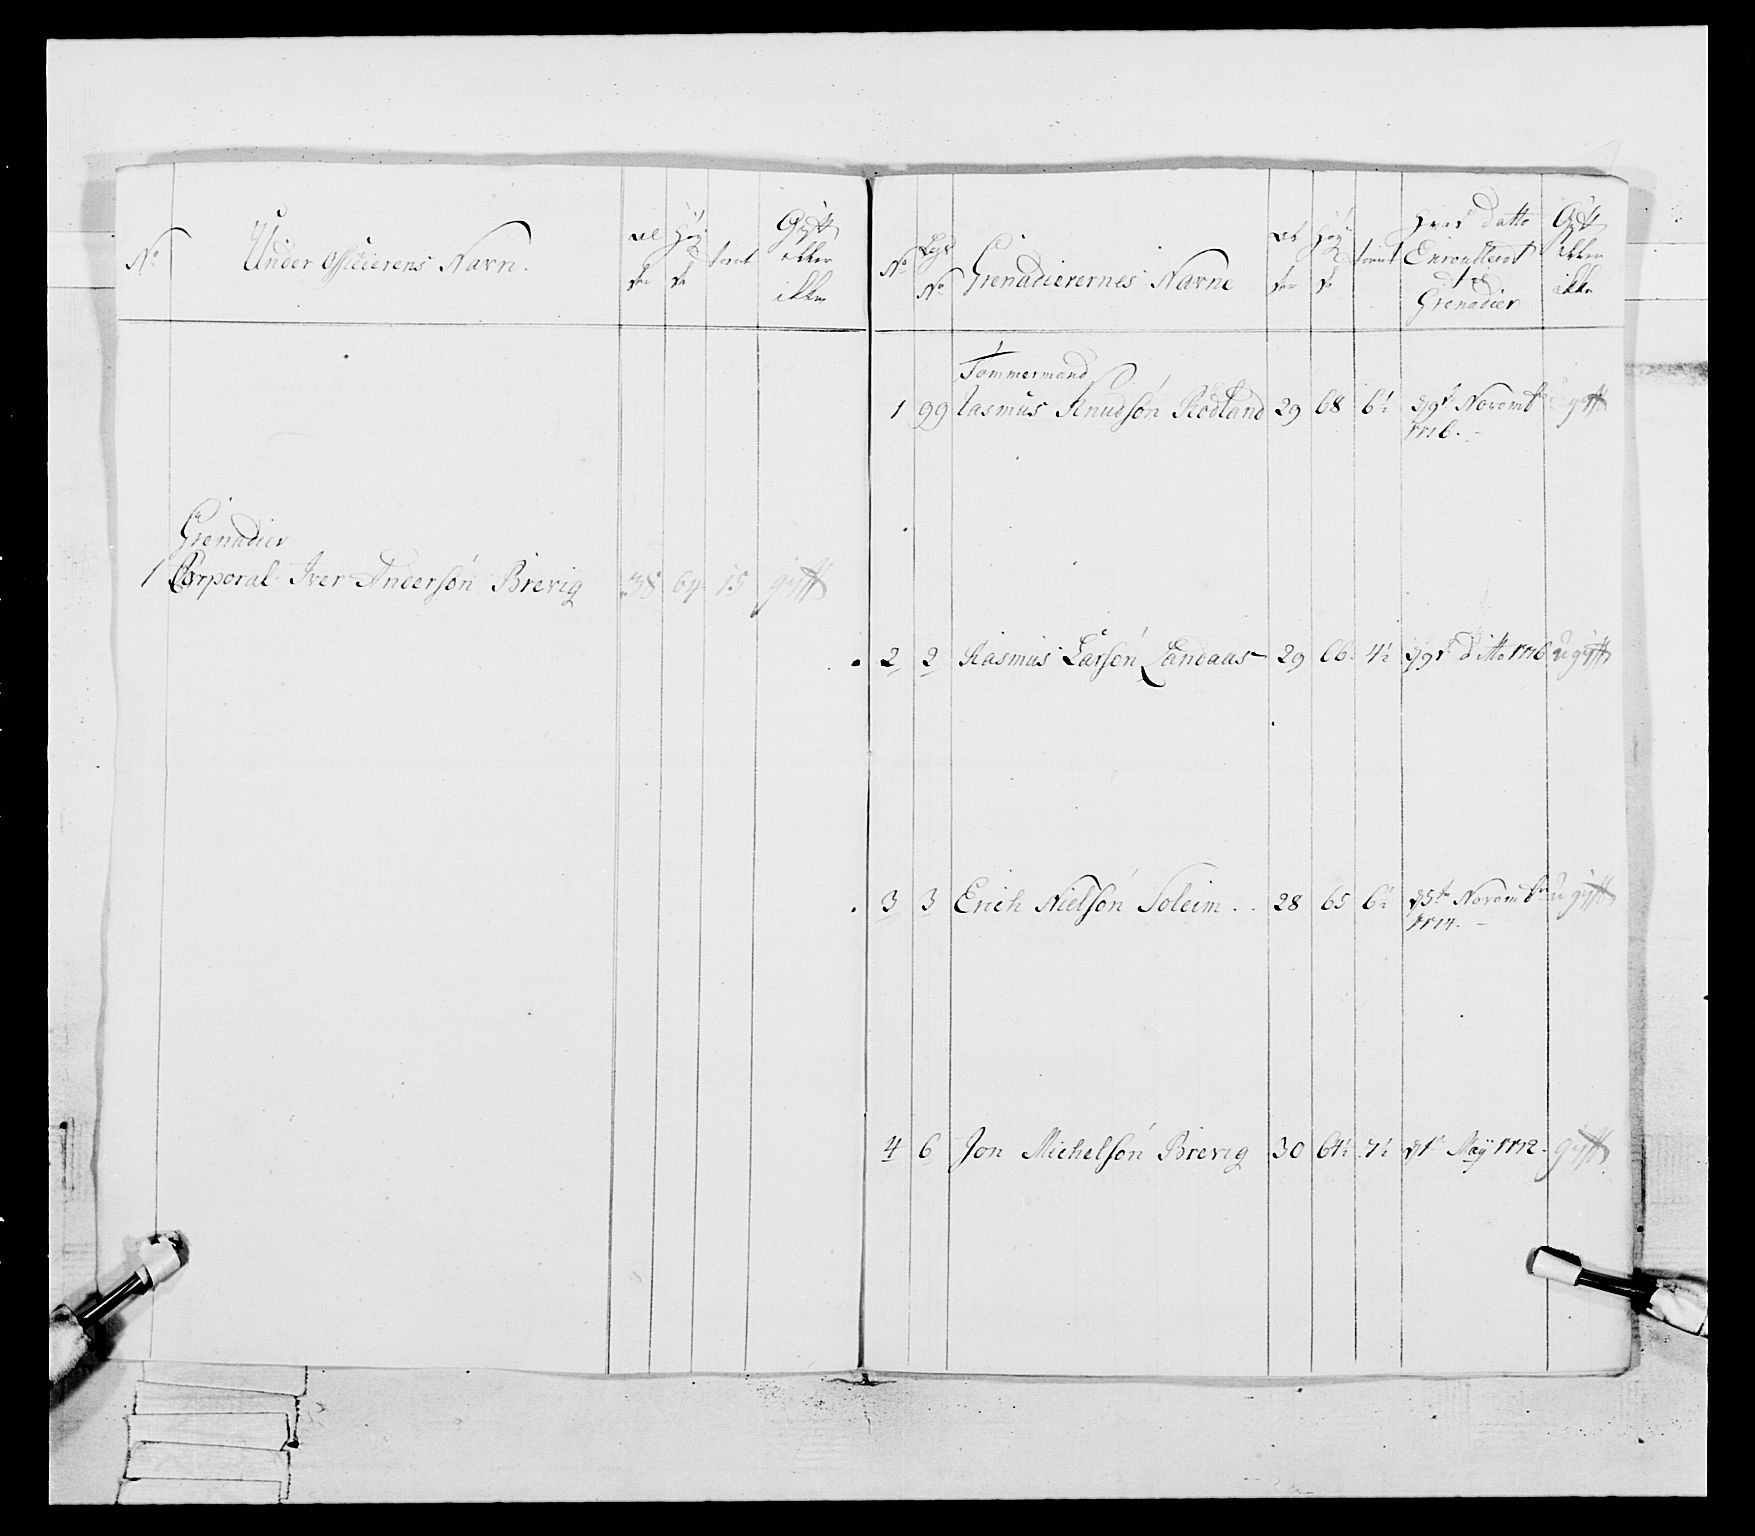 No
Under Officierens Navn.
Al
der
Høy
de
tient
Gift
eller
ikke
Grenadier
1 Corporal Iver Andersøn Brevig 38 64 15 gift
No
Legs
No
Grenadierernes Navne
Al
der
Høy
de
tient
Hvad Datto
Enroulleret
til
Grenadier
Gift
eller
ikke
Tømmermand
1 99 Rasmus Knudsøn Rødland 29 68 6½ d 9de Novemb ugift
1776.
2 2 Rasmus Larsøn Landaas 29 66 4½ d 9de ditto 1776 ugift
3 3 Erich Nielsøn Soleim 28 65 6½ d 5te Novemb ugift
1774.
4 6 Jon Michelsøn Brevig 30 64½ 7½ d 1te May 1772. gift